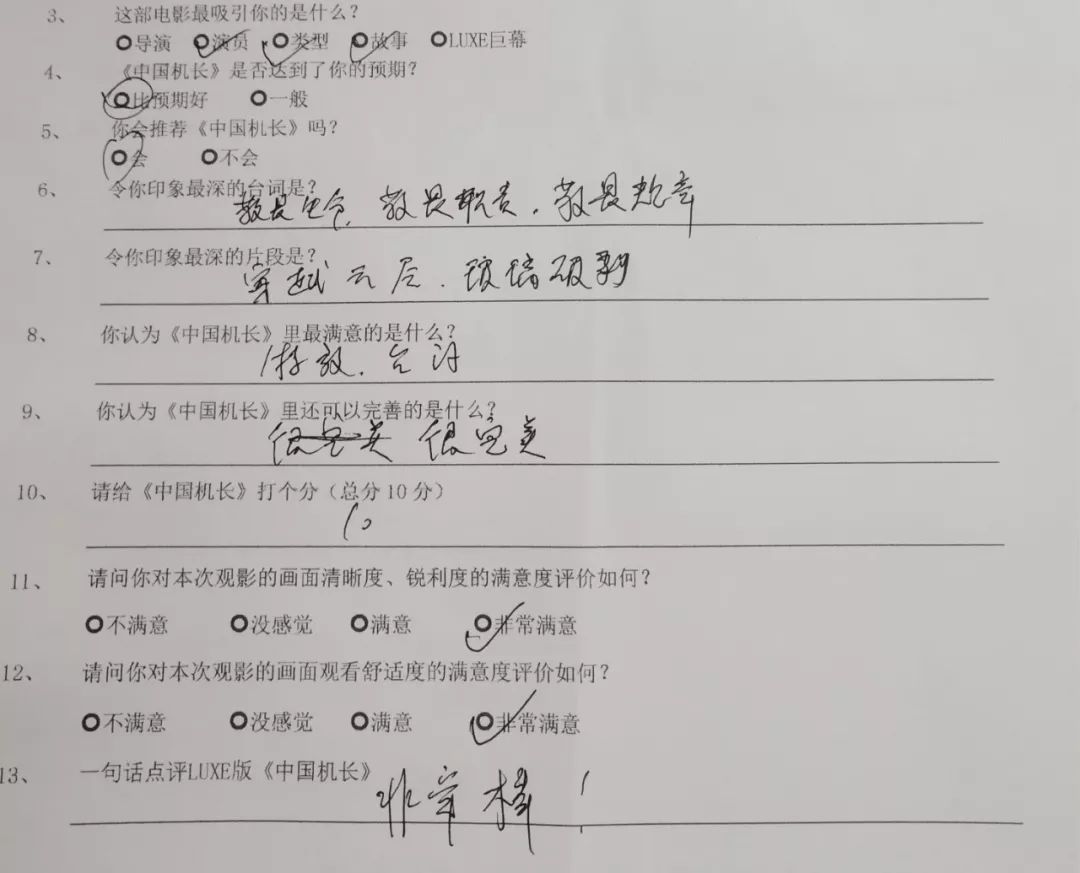 3、 这部电影最吸引你的是什么？
导演 演员 类型 故事 LUXE巨幕
4、 《中国机长》是否达到了你的预期？
比预期好 一般
5、 你会推荐《中国机长》吗？
会 不会
6、 令你印象最深的台词是？
敬畏生命，敬畏职责，敬畏规章
7、 令你印象最深的片段是？
穿越云层，玻璃破裂
8、 你认为《中国机长》里最满意的是什么？
特效、台词
9、 你认为《中国机长》里还可以完善的是什么？
很完美 很完美
10、 请给《中国机长》打个分（总分10分）
10
11、 请问你对本次观影的画面清晰度、锐利度的满意度评价如何？
不满意 没感觉 满意 非常满意
12、 请问你对本次观影的画面观看舒适度的满意度评价如何？
不满意 没感觉 满意 非常满意
13、 一句话点评LUXE版《中国机长》
非常棒！